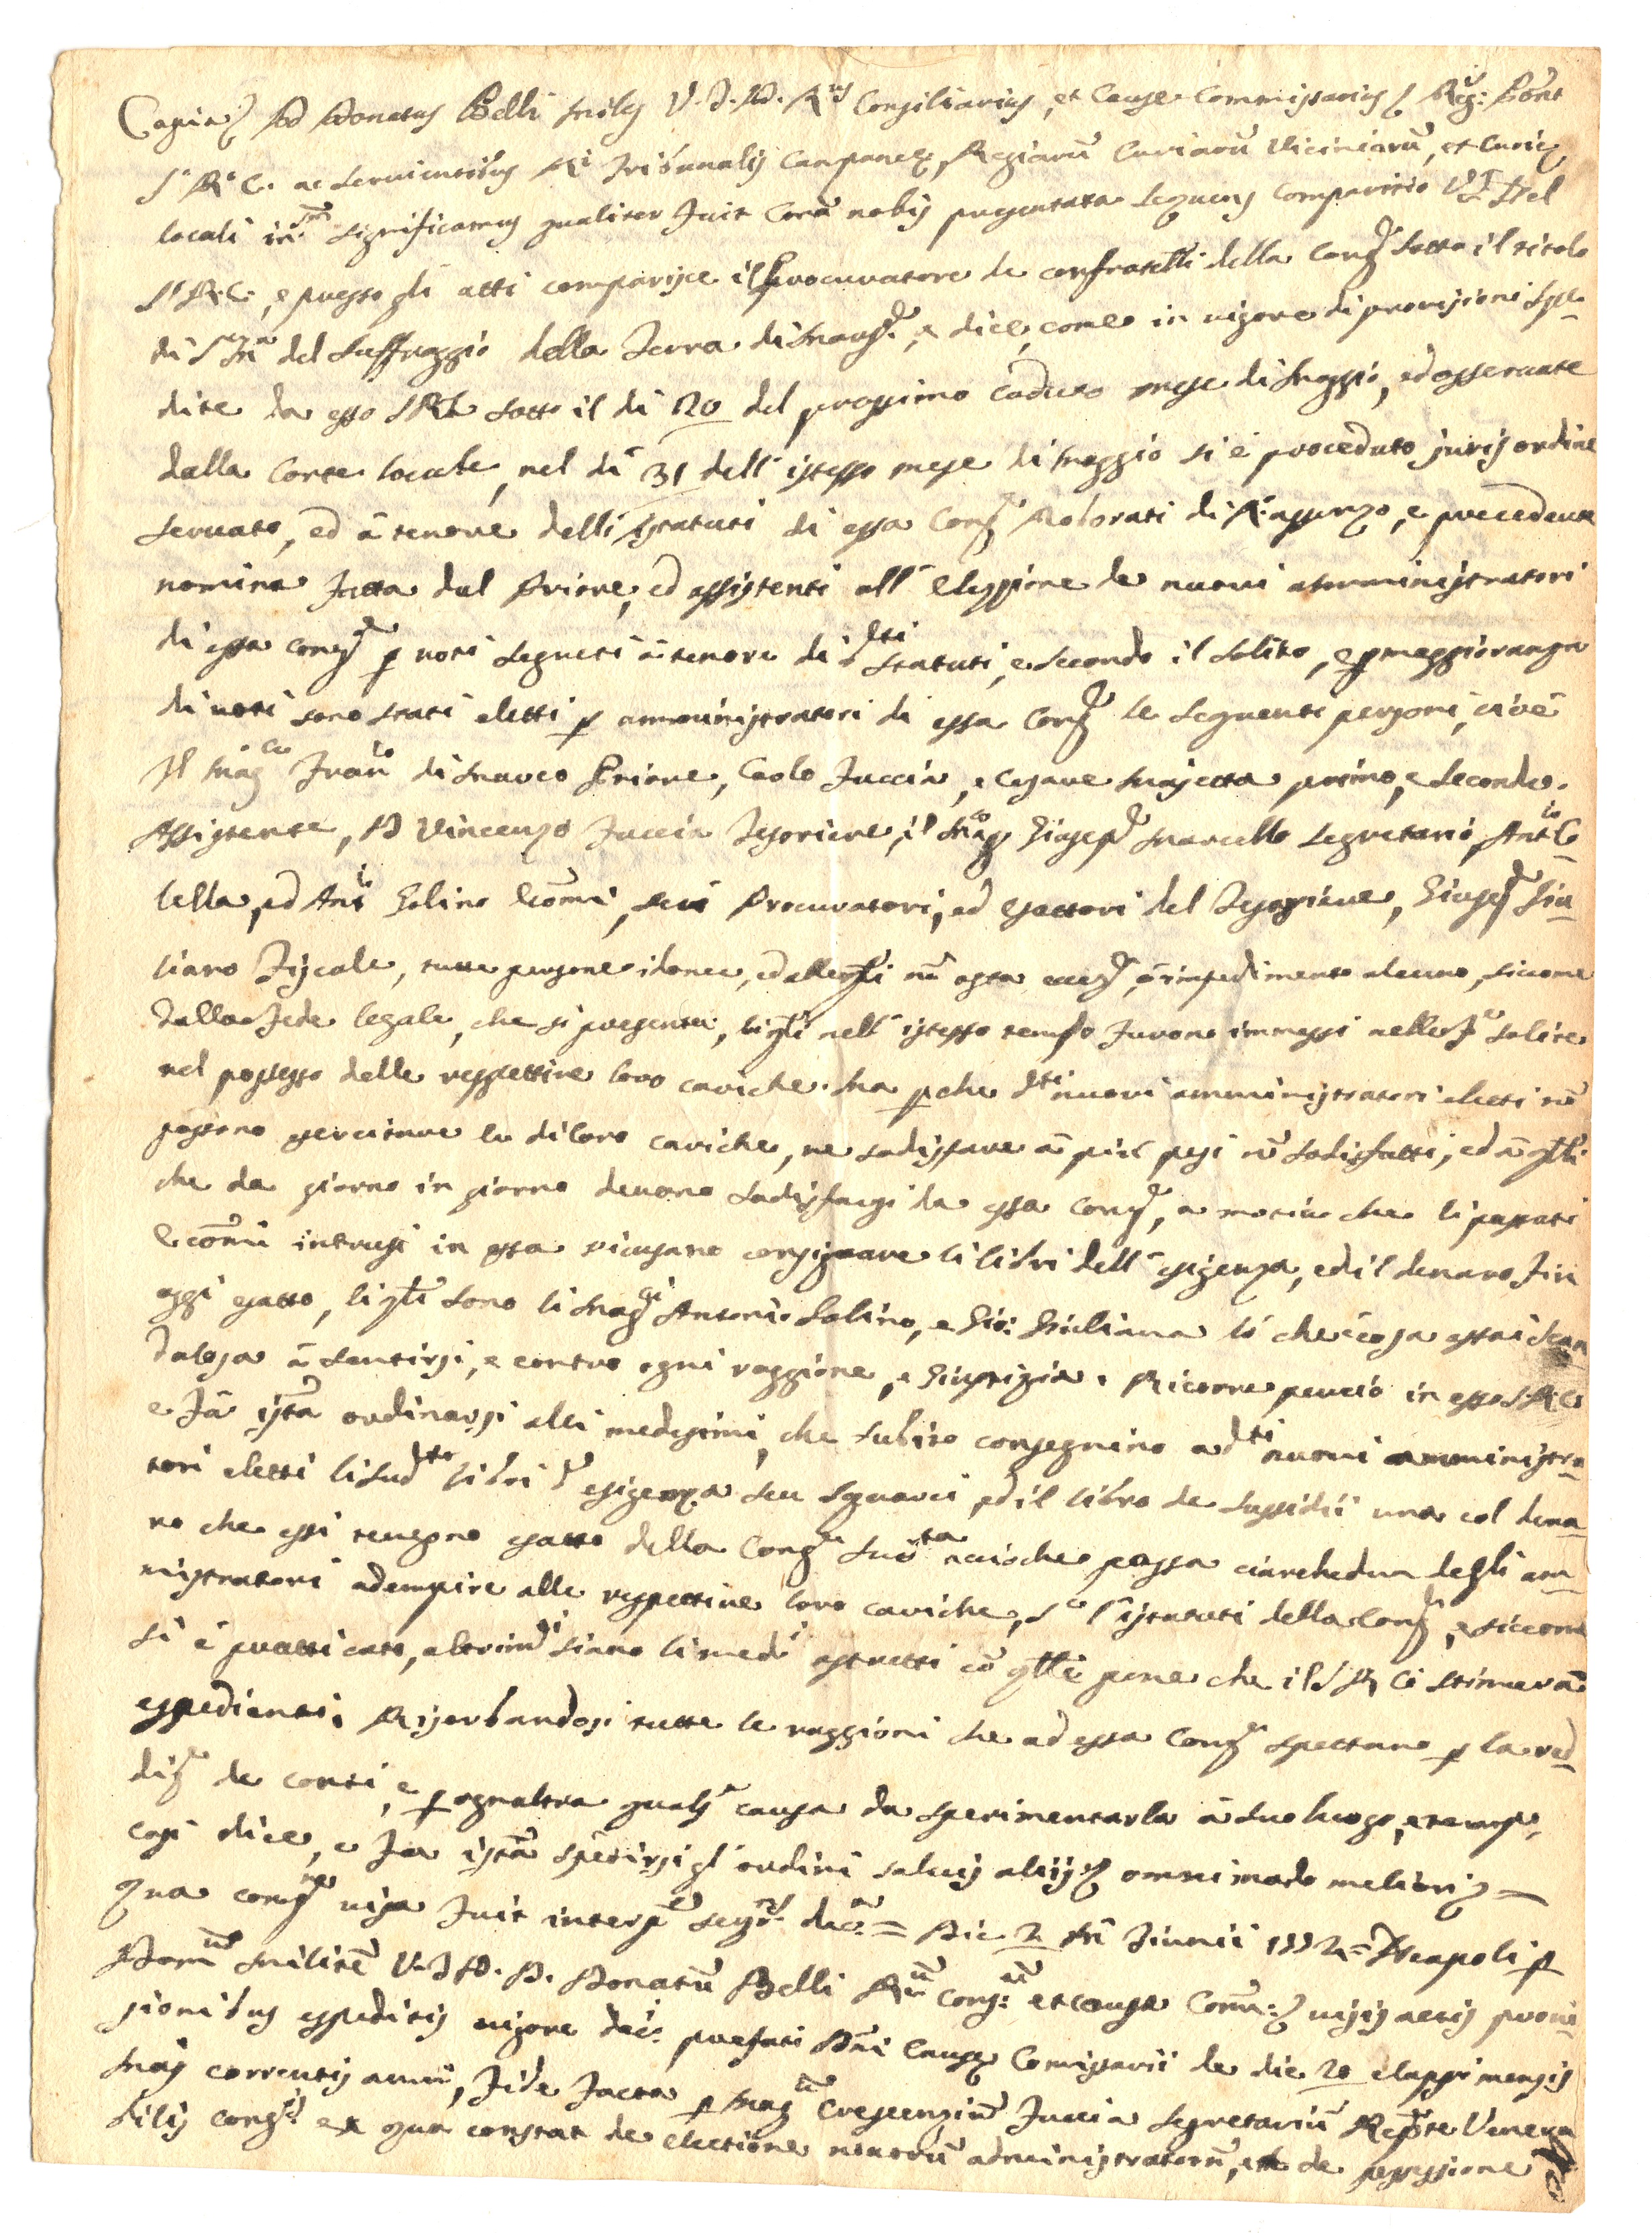 Copia D. Donatus Belli Miles V.J.D. Rius Consiliarius, et Causæ Commissarius Reg:
S. R. C. ac servientibus Ri Tribunalis Campaneæ, Regiarū Curiarū Viciniarū, et Curiæ
locali insm significamus qualiter fuit Corā nobis presentata sequens Comparitio Vz Nel
S. R. C., e presso gli atti comparisce il Procuratore de confratelli della Congne sotto il titolo
di S. Ma del Suffraggio della Terra di e dice, come in vigore di provisioni spe-
dite da esso S.R.C. sotto il di 20 del prossimo caduto mese di Maggio, ed osservate
dalla Corte locale, nel dì 31 dell'istesso mese di Maggio si è proceduto juris ordine
servato, ed à tenore delli statuti di essa Congne Roborati di R. assenzo, e precedente
nomina fatta dal Priore, ed assistenti all'elezzione de nuovi amministratori
di essa Congne p voti segreti à tenore di dtti statuti, e secondo il solito, e p maggioranza
di voti sono stati eletti p amministratori di essa Congne le seguenti persone, cioè
Il Magco Franco di Marco Priore, Carlo Juccia, e Cesare Majetta primo, e secondo
Assistente, D. Vincenzo Juccia Tesoriere, il Mago Giusepe Marcello Segretario, Anto Co
lella, ed Anto Golino Econmi, seu Procuratori, ed esattori del Tesoriere, Giusepe Giu-
liano Fiscale, tutte persone idonee, ed alle qli nō osta ecceze, ò impedimento alcuno, siccome
dalla fede legale, che si presenta, li qli nell'istesso tempo furono immessi nelle fe solite
nel possesso delle respettive loro cariche. Ma pche dtti nuovi amministratori eletti nō
possono esercitare le di loro cariche, ne sadisfare à più pesi nō sadisfatti, ed à qlli
che da giorno in giorno devono sadisfarsi da essa Congne, a motivo che li passati
Econmi intrusi in essa ricusano consignare li libri dell'esigenza, ed il denaro fin
oggi esatto, li qli sono li Magci Antonio Golino, e Gio: Giuliano lo che è cosa assai scan
dalosa à sentirsi, e contro ogni raggione, e Giustizia. Ricorre perciò in esso S.R.C.
e fà istā ordinarsi alli medesimi, che subito consegnino a dtti nuovi amministra-
tori eletti li sudtti libri d' esigenza seu squarci, ed il libro de sussidii una col dena-
ro che essi tengono esatto della Congne sudta acioche possa ciaschedun degli am-
ministratori adempire alle respettive loro cariche, so l'istatuti della Congne, e siccome
si è pratticato, altrimti siano li medi astretti cō qlle pene che il S.R.C. stimerà
espedienti. Riserbandosi tutte le raggioni che ad essa Congne spettano p la red-
dize de conti, e p ogn altra qualse causa da sperimentarla à suo luogo, e tempo,
così dice, e fa istā spedirsi gl'ordini salvis aliis omni modo meliori =
qua compne visa fuit interpo seqns decm = Die 2 Mi Junii 1772 = Neapoli p
Domum Militē V.J.D. D. Donatū Belli Rum Cons: et Causæ Comm: visis actis provi-
sionibus expeditis vigore deci prefati Dni Causæ Comissarii de die 20 elapsi mensis
Maij correntis anni, fide facta p Magcum Crescenziū Juccia Segretariū Repte Venera
bilis Congis ex qua constat de electione novorū administratorū, et de possessione